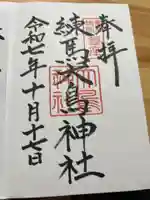 奉拝
練馬大鳥神社
令和七年十月十七日